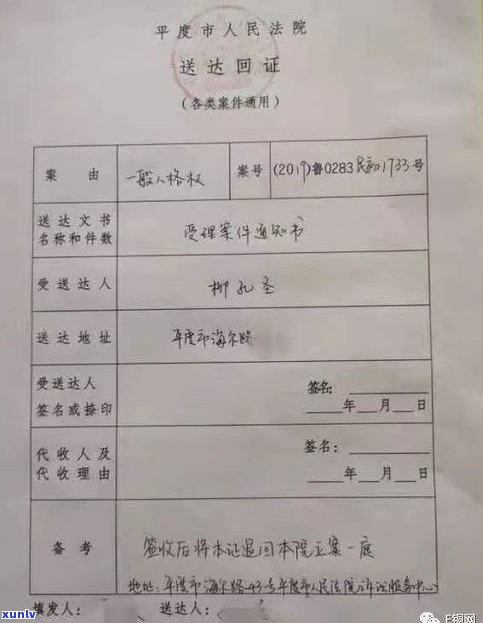 平度市人民法院
送达回证
(各类案件通用)
案由 一般人格权 案号 (2019)鲁0283民初1733号
送达文书
名称和件数 受理案件通知书
受送达人 柳孔圣
送达地址 平度市海尔路
受送达人
签名或捺印 签名:
年 月 日
代收人及
代收理由 签名:
年 月 日
备考 签收后将本证退回本院立案一庭
地址:平度市海尔路43号平度市人民法院诉讼服务中心
填发人: 送达人:
xunlv
E铜网